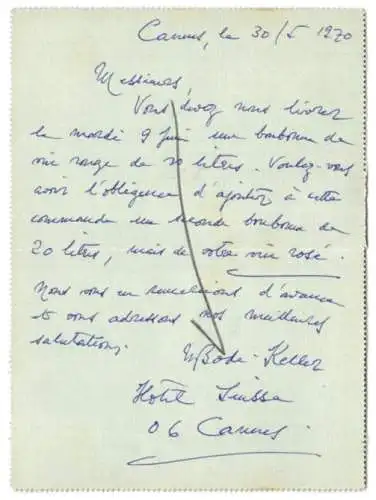 Cannes, le 30/5 1970
Messieurs,
Vous devez nous livrer
le mardi 9 juin une bonbonne de
vin rouge de 20 litres. Voulez-vous
avoir l'obligeance d'ajouter à cette
commande une seconde bonbonne de
20 litres, mais de votre vin rosé.
Nous vous en remercions d'avance
et vous adressons nos meilleures
salutations.
Bode-Keller
Hotel Suisse
06 Cannes.